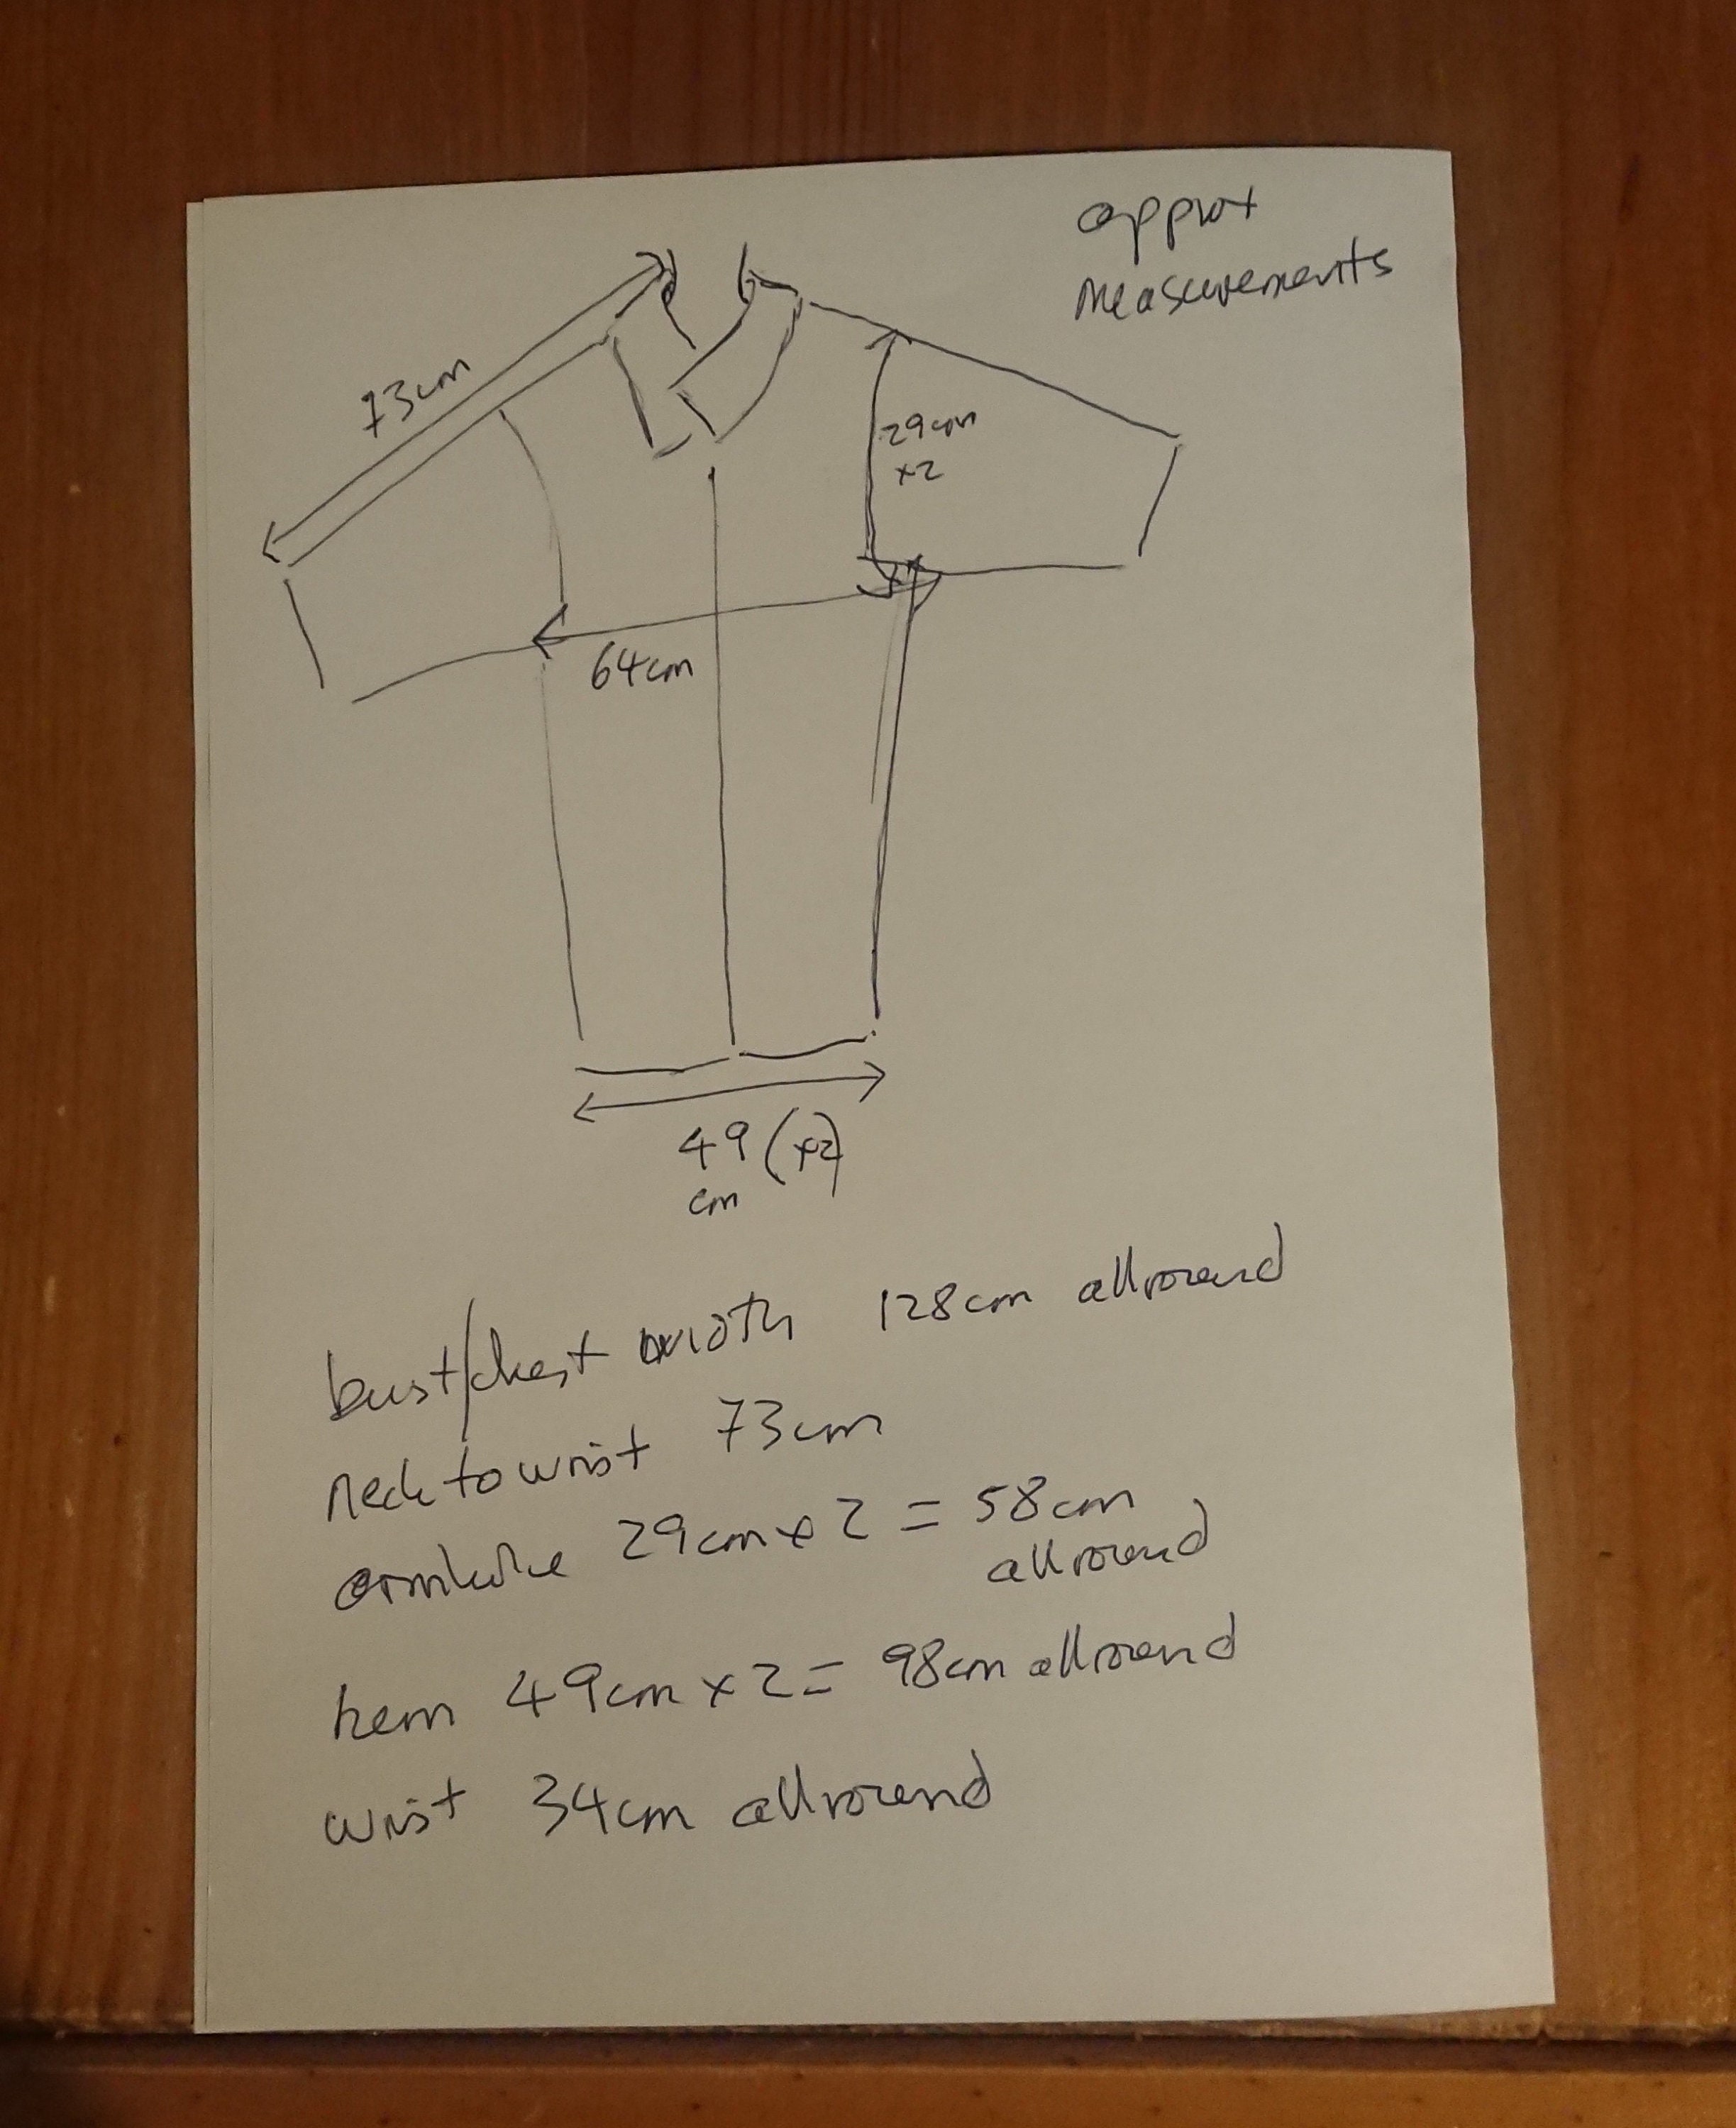 approx
measurements
73cm
29cm
x2
64cm
49 (x2)
cm
bust/chest width 128cm allround
neck to wrist 73cm
armhole 29cm x 2 = 58cm
allround
hem 49cm x 2 = 98cm allround
wrist 34cm allround